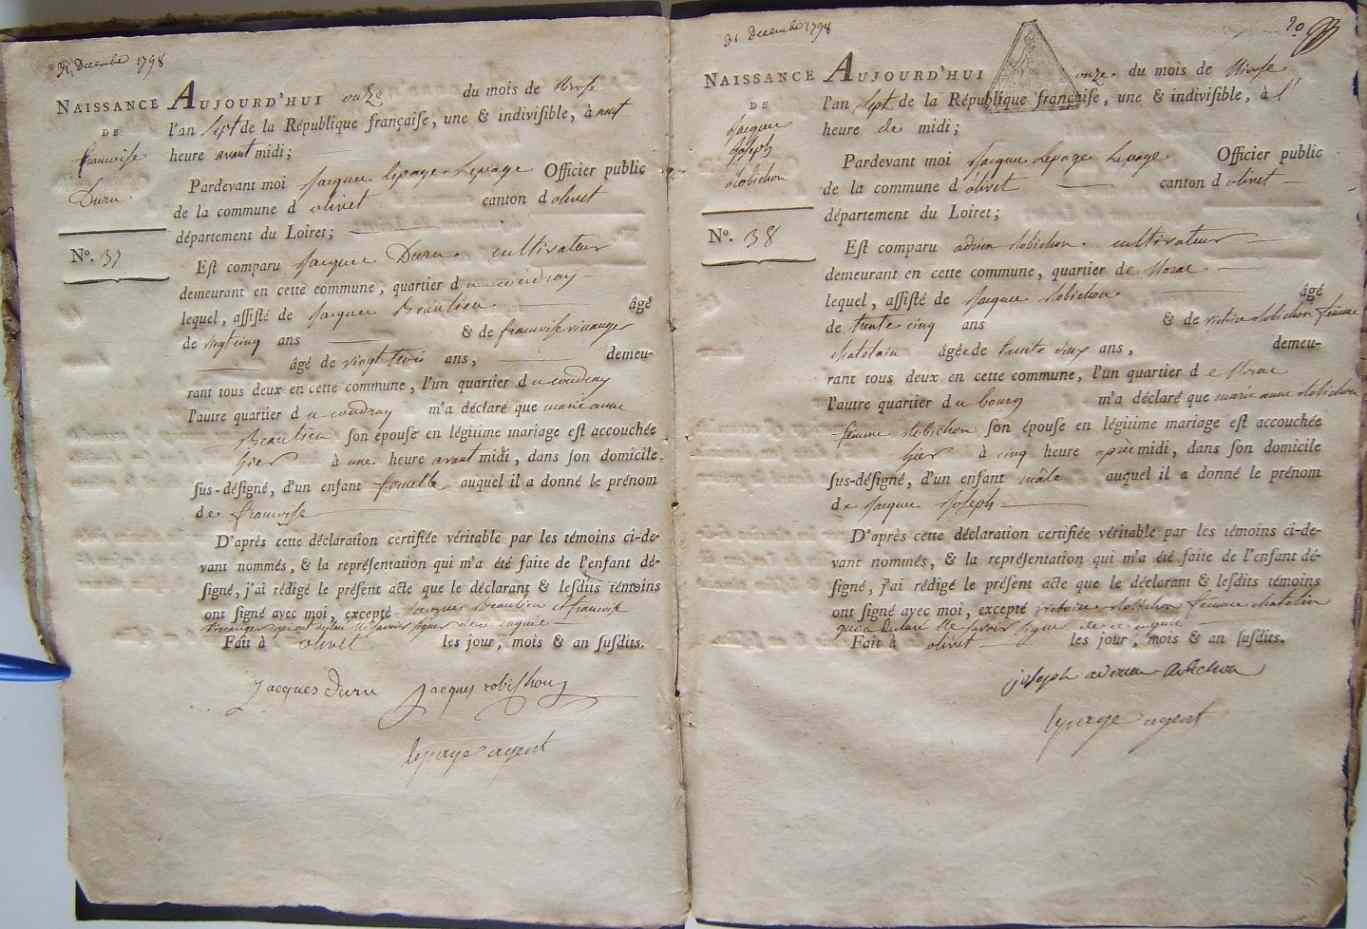 31 Decembre 1798
NAISSANCE
DE
francoise
Duru.
N°. 37
AUJOURD'HUI onze du mois de Nivose
l'an sept de la République françaiſe, une & indiviſible, à neuf
heure avant midi;
Pardevant moi Jacques Lepage Lepage Officier public
de la commune d olivet canton d olivet
département du Loiret;
Eſt comparu Jacques Duru. cultivateur
demeurant en cette commune, quartier du coudray
lequel, aſſiſté de Jacques Beaulieu. âgé
de vingt cinq ans & de francoise
âgé de vingt trois ans, demeu-
rant tous deux en cette commune, l'un quartier du coudray
l'autre quartier du coudray m'a déclaré que marie anne
Beaulieu ſon épouſe en légitime mariage eſt accouchée
hier à une heure avant midi, dans ſon domicile
ſus-déſigné, d'un enfant femelle auquel il a donné le prénom
de francoise
D'après cette déclaration certifiée véritable par les témoins ci-de-
vant nommés, & la repréſentation qui m'a été faite de l'enfant dé-
ſigné, j'ai rédigé le préſent acte que le déclarant & leſdits témoins
ont ſigné avec moi, excepté Jacques Beaulieu et francoise
Fait à olivet les jour, mois & an ſuſdits.
Jacques duru Jacques robichon
lepage agent
31 Decembre 1798
20
NAISSANCE
DE
Jacques
Joseph
Robichon
N°. 38
AUJOURD'HUI onze du mois de Nivose
l'an sept de la République françaiſe, une & indiviſible, à l'
heure de midi;
Pardevant moi Jacques Lepage Lepage Officier public
de la commune d olivet canton d olivet
département du Loiret;
Eſt comparu adrien Robichon. cultivateur
demeurant en cette commune, quartier de
lequel, aſſiſté de Jacques Robichon. âgé
de trente cinq ans & de Robichon femme
chatelain âgée de trente deux ans, demeu-
rant tous deux en cette commune, l'un quartier de
l'autre quartier du bourg m'a déclaré que marie anne Robichon
femme Robichon ſon épouſe en légitime mariage eſt accouchée
hier à cinq heure après midi, dans ſon domicile
ſus-déſigné, d'un enfant mâle auquel il a donné le prénom
de Jacques Joseph
D'après cette déclaration certifiée véritable par les témoins ci-de-
vant nommés, & la repréſentation qui m'a été faite de l'enfant dé-
ſigné, j'ai rédigé le préſent acte que le déclarant & leſdits témoins
ont ſigné avec moi, excepté victoire Robichon femme chatelin
qui a declaré ne savoir signer de ce enquise
Fait à olivet les jour, mois & an ſuſdits.
joseph adrien Robichon
lepage agent